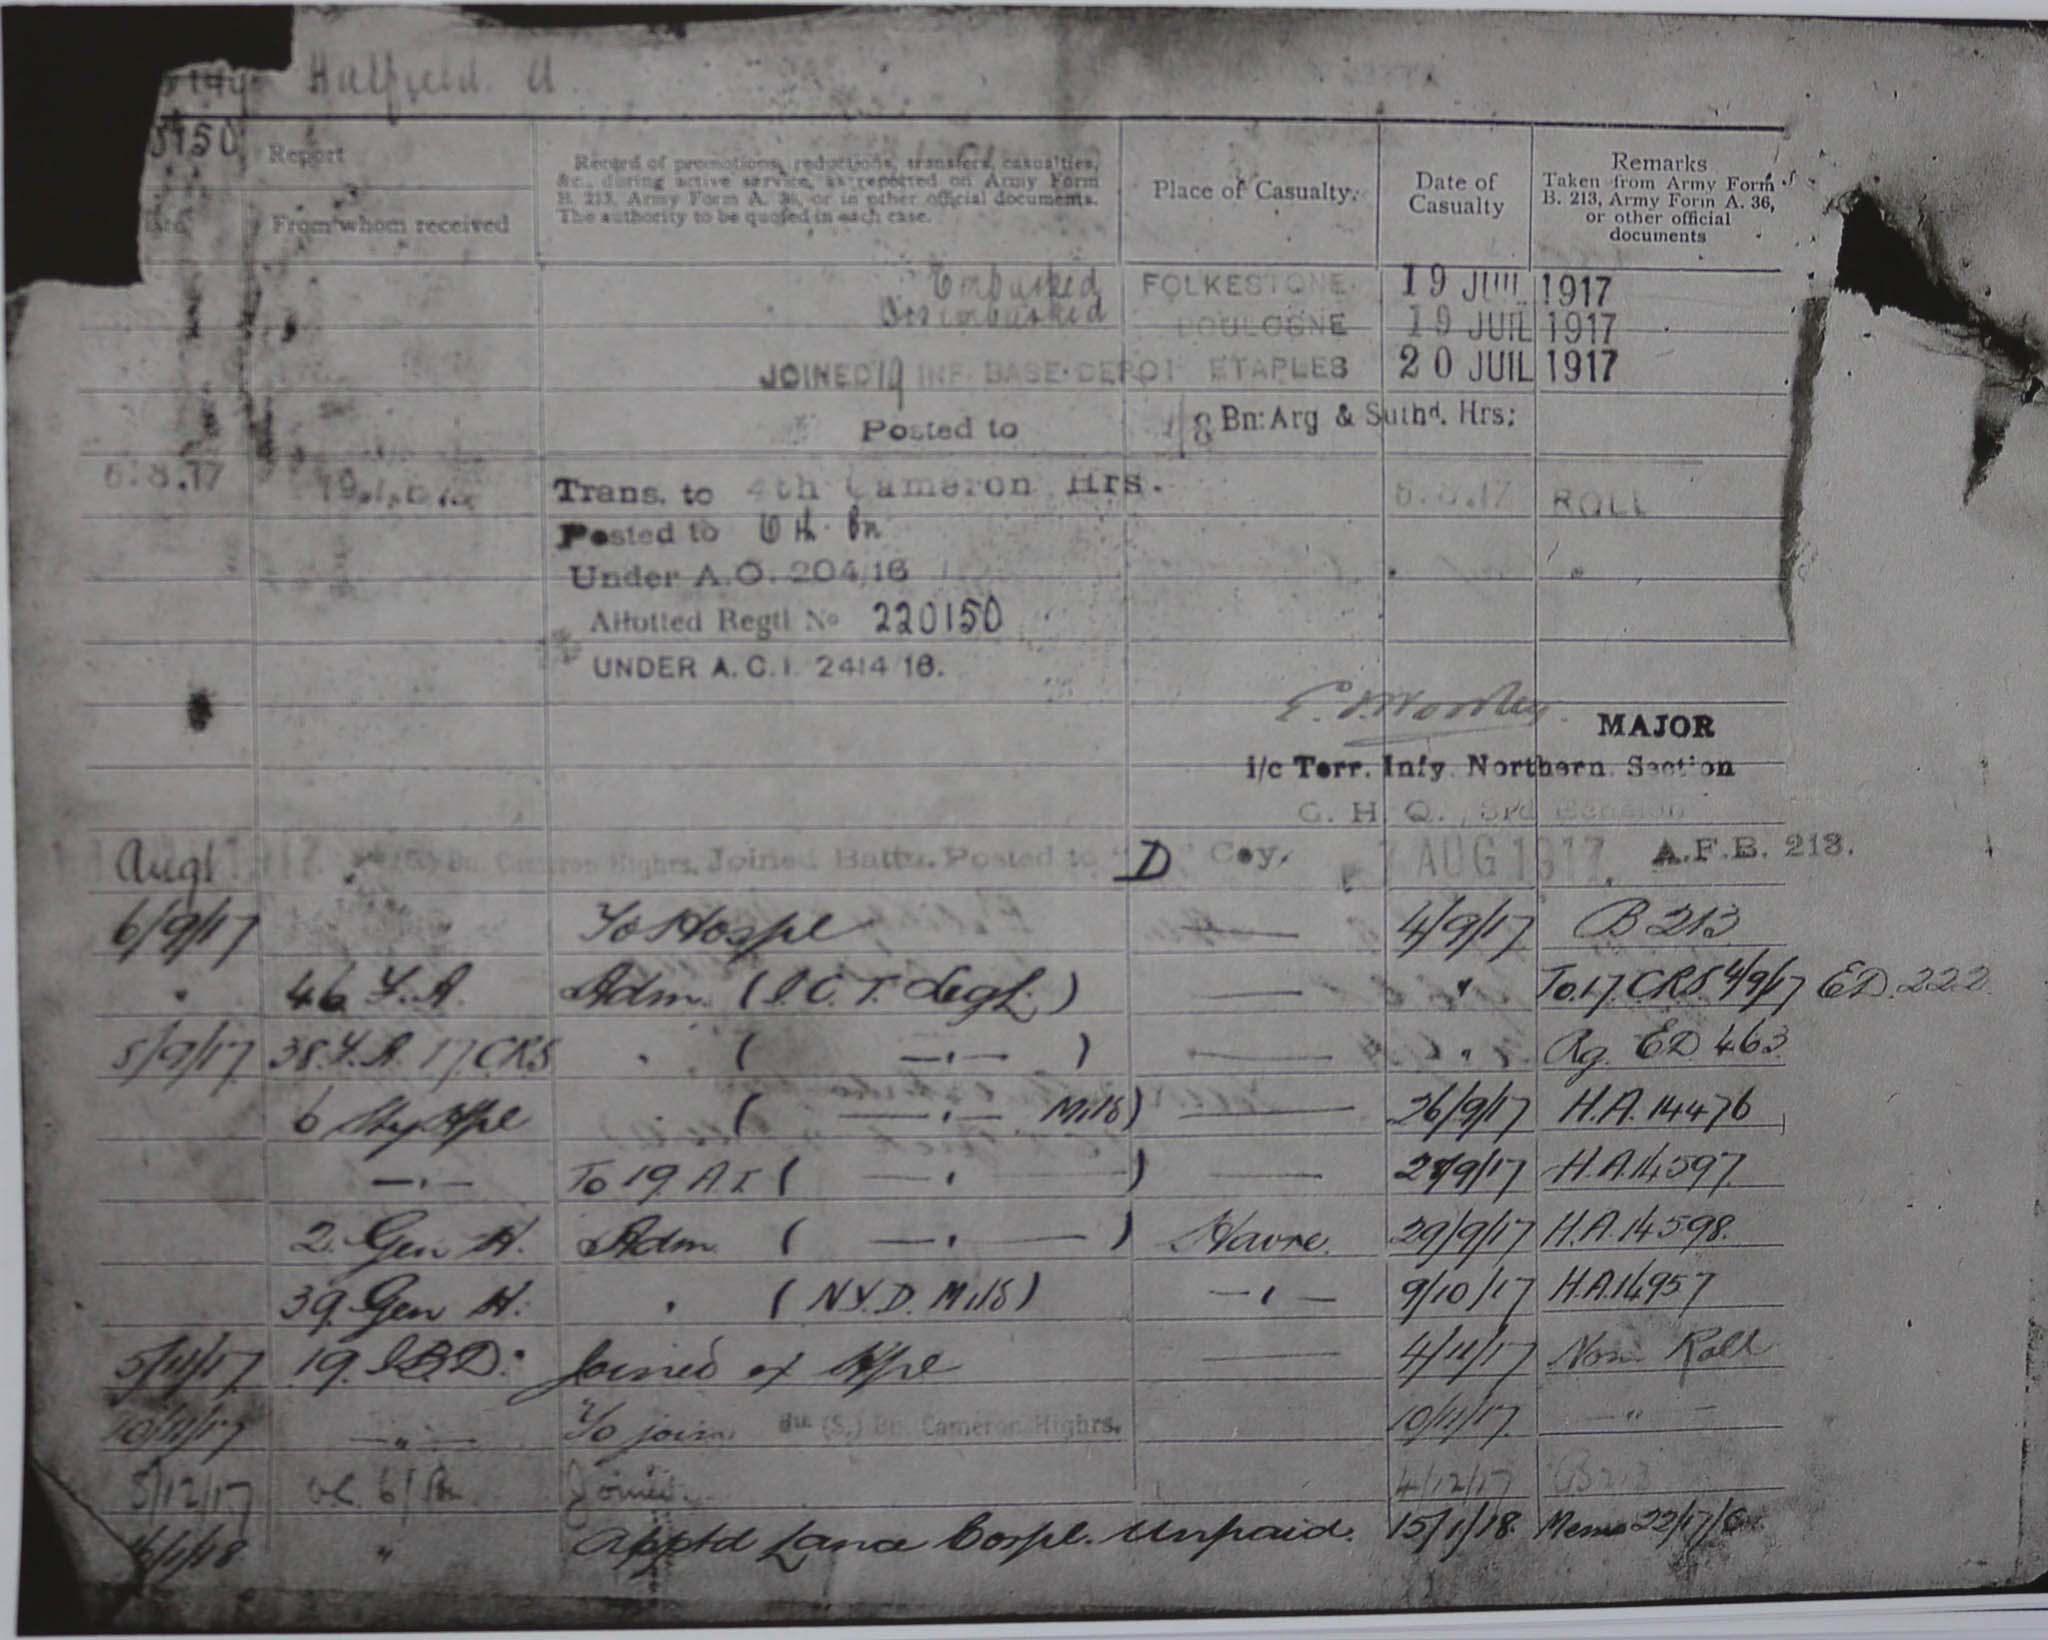 Hatfield. A.
150
Report
Record of promotions, reductions, transfers, casualties, &c., during active service, as reported on Army Form B. 213, Army Form A. 36, or in other official documents. The authority to be quoted in each case.
Place of Casualty.
Date of Casualty
Remarks Taken from Army Form B. 213, Army Form A. 36, or other official documents
From whom received
Embarked FOLKESTONE 19 JUIL 1917
Disembarked BOULOGNE 19 JUIL 1917
JOINED 19 INF. BASE DEPOT ETAPLES 20 JUIL 1917
Posted to 1/8 Bn: Arg & Suthd. Hrs:
6.8.17 Trans. to 4th Cameron Hrs. 6.8.17 ROLL
Posted to 6th Bn
Under A.O. 204/16
Allotted Regtl No 220150
UNDER A.C.I. 2414/16.
MAJOR
i/c Terr. Infy. Northern Section
G. H. Q., 3rd Echelon
Augt (S.) Bn. Cameron Highrs. Joined Battn. Posted to "D" Coy. AUG 1917. A.F.B. 213.
6/9/17 " To Hospl — 4/9/17 B 213
" 46 F.A. Adm. (I.C.T. Legs) — " To 17 CRS 4/9/17 ED. 222
5/9/17 38 F.A. 17 CRS " ( —"— ) — " ED 463
6 Sty Hpl " ( —"— Mild) — 26/9/17 H.A. 14476
—"— To 19 A.T. ( —"— ) — 28/9/17 H.A. 14597
2 Gen H. Adm ( —"— ) Havre. 29/9/17 H.A. 14598.
39 Gen H. " (N.Y.D. Mild) —"— 9/10/17 H.A. 14957
5/11/17 19 I.B.D. Joined ex Hpl — 4/11/17 Nom Roll
10/11/17 —"— To join (S.) Bn. Cameron Highrs. 10/11/17 —"—
5/12/17 O.C. 6/Bn Joined 4/12/17 B213
16/1/18 " Apptd Lance Corpl. Unpaid. 15/1/18 Memo